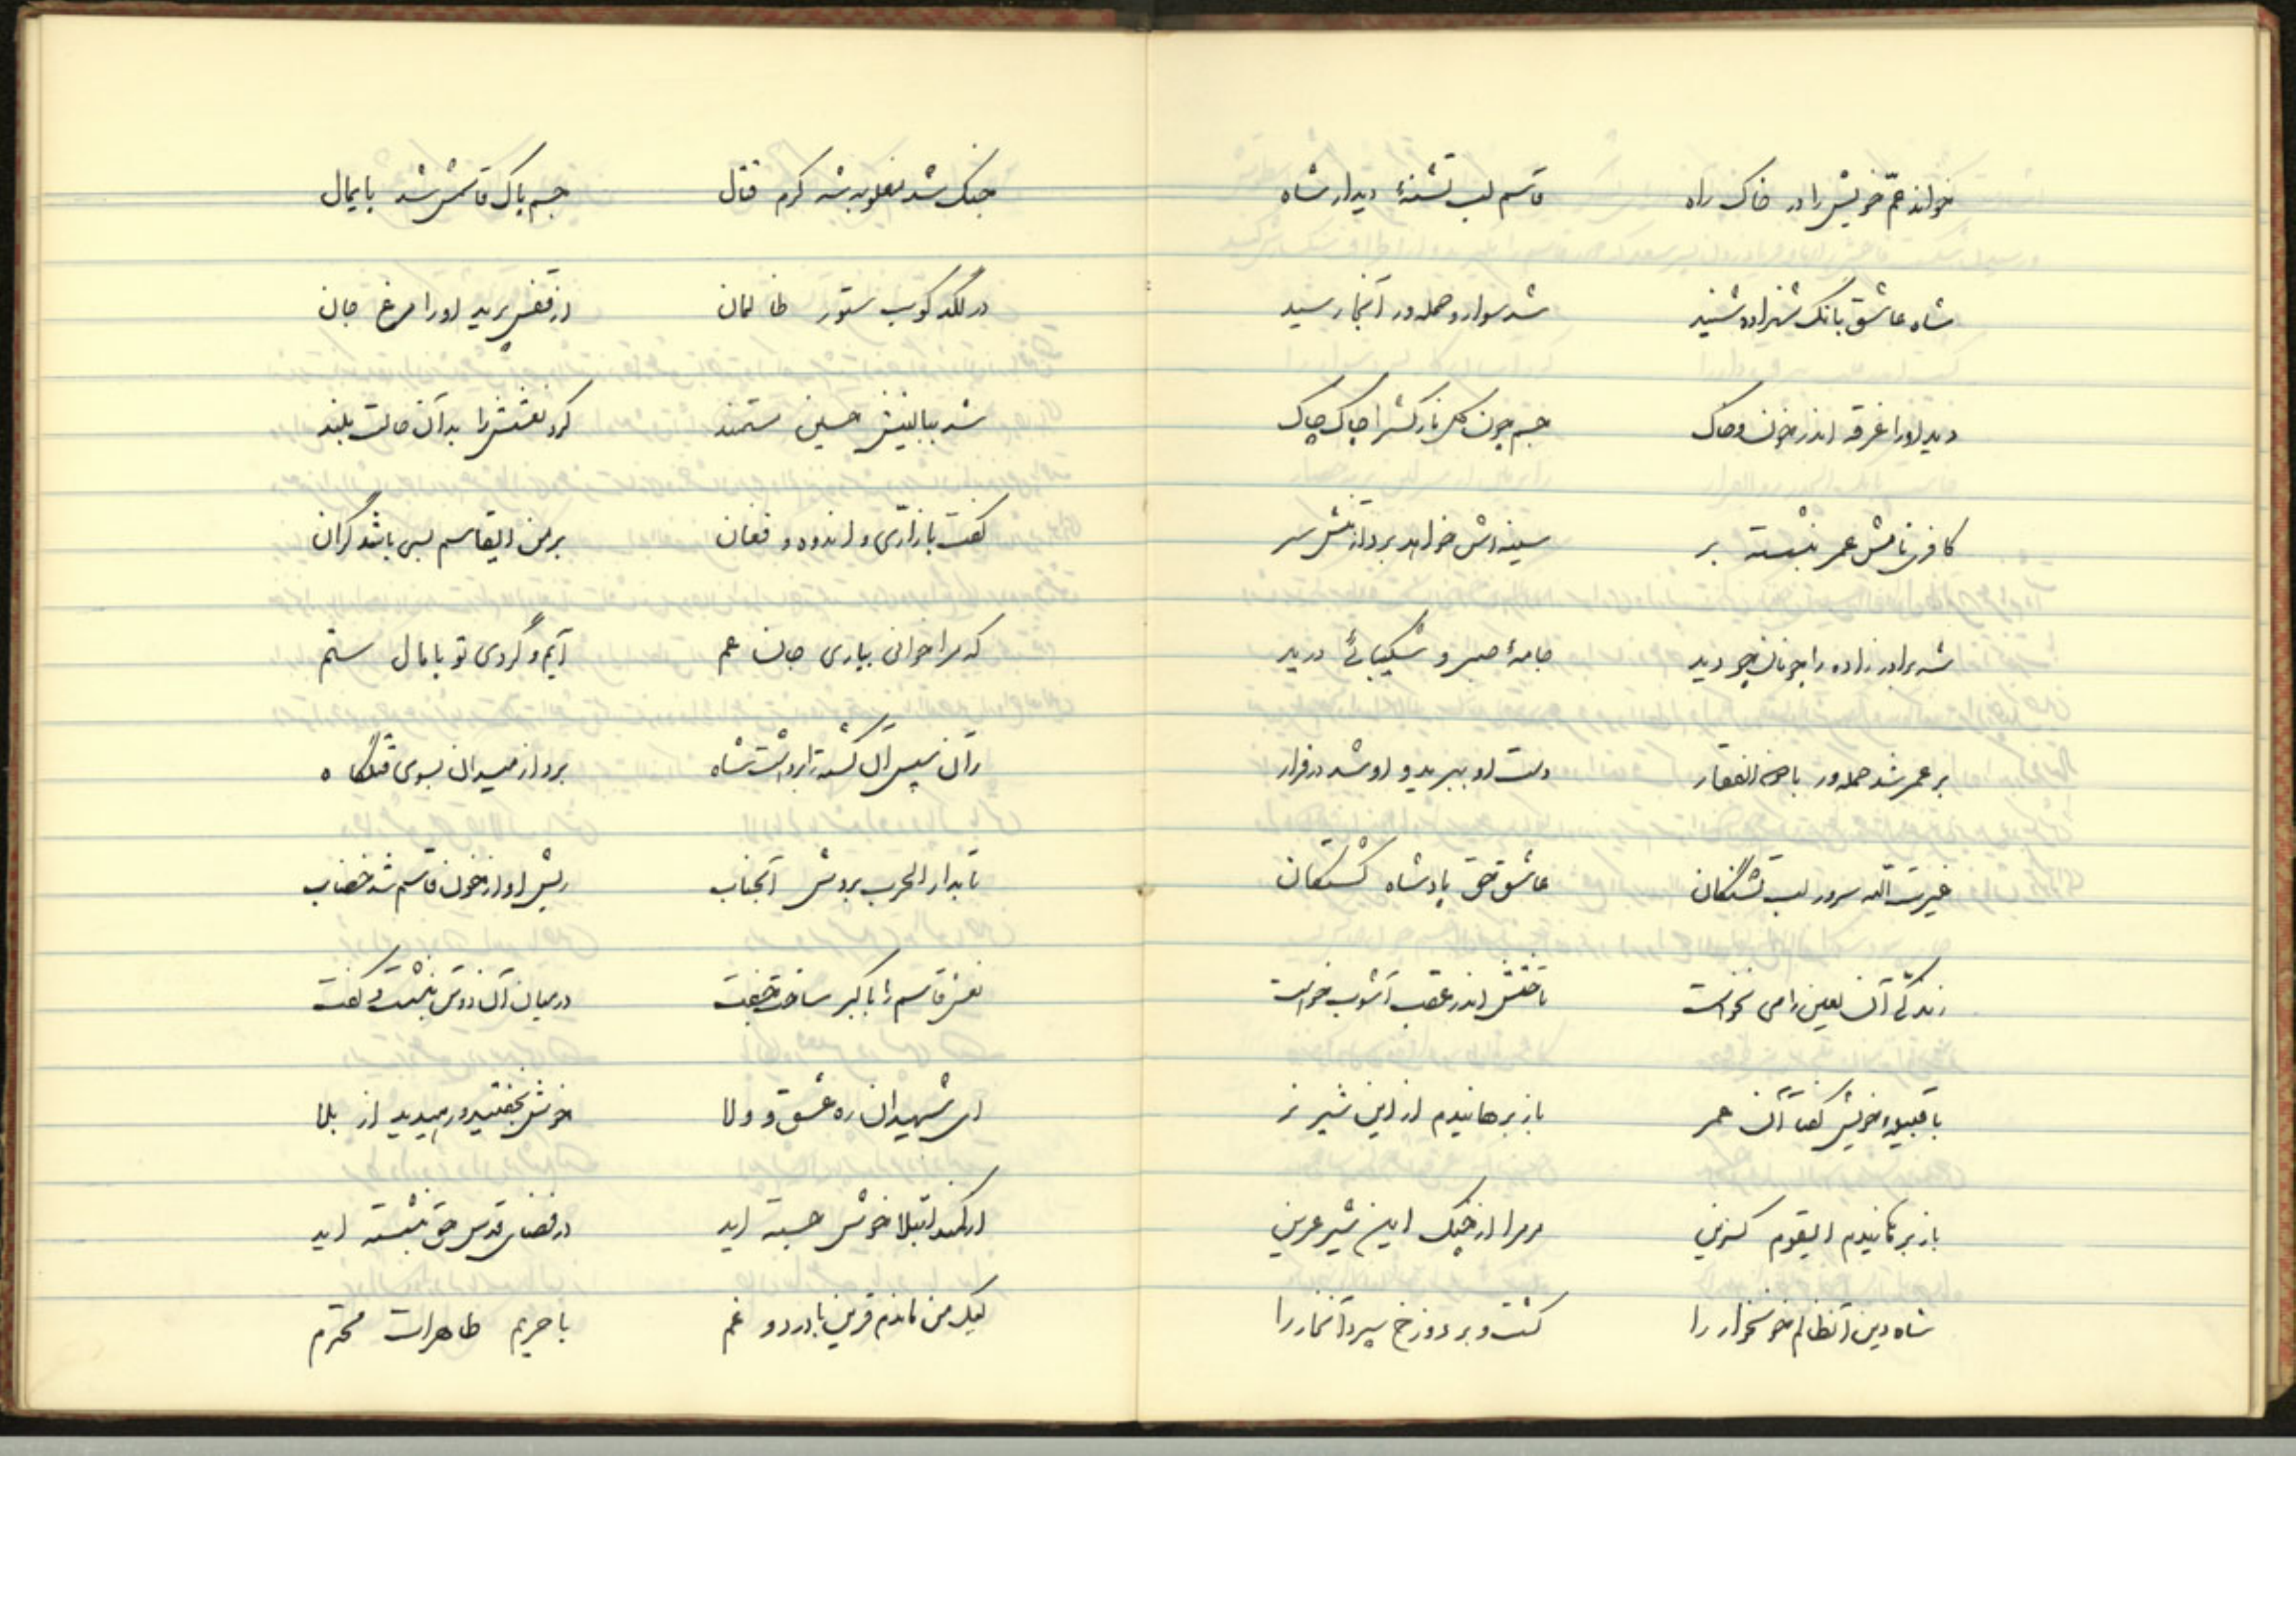 خواند عمّ خویش را در خاک راه قاسم لب تشنهٔ دیدار شاه
شاه عاشق بانک شهزاده شنید شد سوار و حمله ور آنجا رسید
دید او را غرقه اندر خون و خاک جسم چون گل نازکش را چاک چاک
کافری نامش عمر بنشسته بر سینه اش خواهد برد از تنش سر
شه برادر زاده را چونانچو دید جامهٔ صبر و شکیبائی درید
بر عمر شد حمله ور با ذوالفقار دست او ببرید و او شد در فرار
غیرت الله سرور لب تشنگان عاشق حق پادشاه کشتگان
زندگی آن لعین را می نخواست تاختش اندر عقب آشوب خواست
با قبیله خویش گفتا آن عمر باز برهانیدم از این شیر نر
باز برهانیدم ایقوم گزین مرمرا از چنگ این شیر عرین
شاه دین آنظالم خونخوار را کشت و بر دوزخ سپرد آنخار را
جنک شد مغلوبه شد کرم قتال جسم پاک قاسمش شد پایمال
در لگد کوب ستور ظالمان از قفس پرید او را مرغ جان
شد ببالینش حسین مستمند کرد نعشش را بدان حالت بلند
گفت با زاری و اندوه و فغان بر من ایقاسم بسی باشد گران
که مرا خوانی بیاری جان عم آیم و گردی تو پامال ستم
زان سپس آن کشته را برداشت شاه برد از میدان بسوی قتلگاه
تا بدار الحرب بردش آنجناب ریش او از خون قاسم شد خضاب
نعش قاسم را باکبر ساخت جفت در میان آن دو تن بنشست و گفت
ای شهیدان ره عشق و ولا خوش بخفتید و رهیدید از بلا
از کمند ابتلا خوش جسته اید در فضای قدس حق بنشسته اید
لیک من ماندم قرین با درد و غم با حریم طاهرات محترم